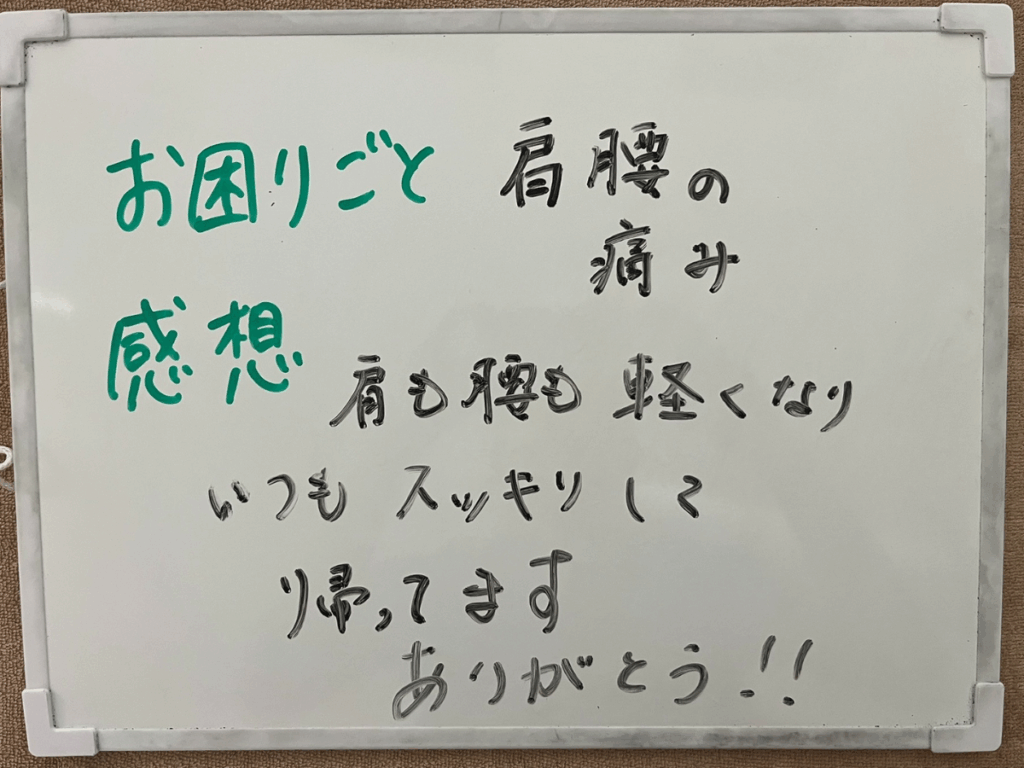 お困りごと 肩腰の
痛み
感想
肩も腰も軽くなり
いつもスッキリして
り帰ってます
ありがとう!!